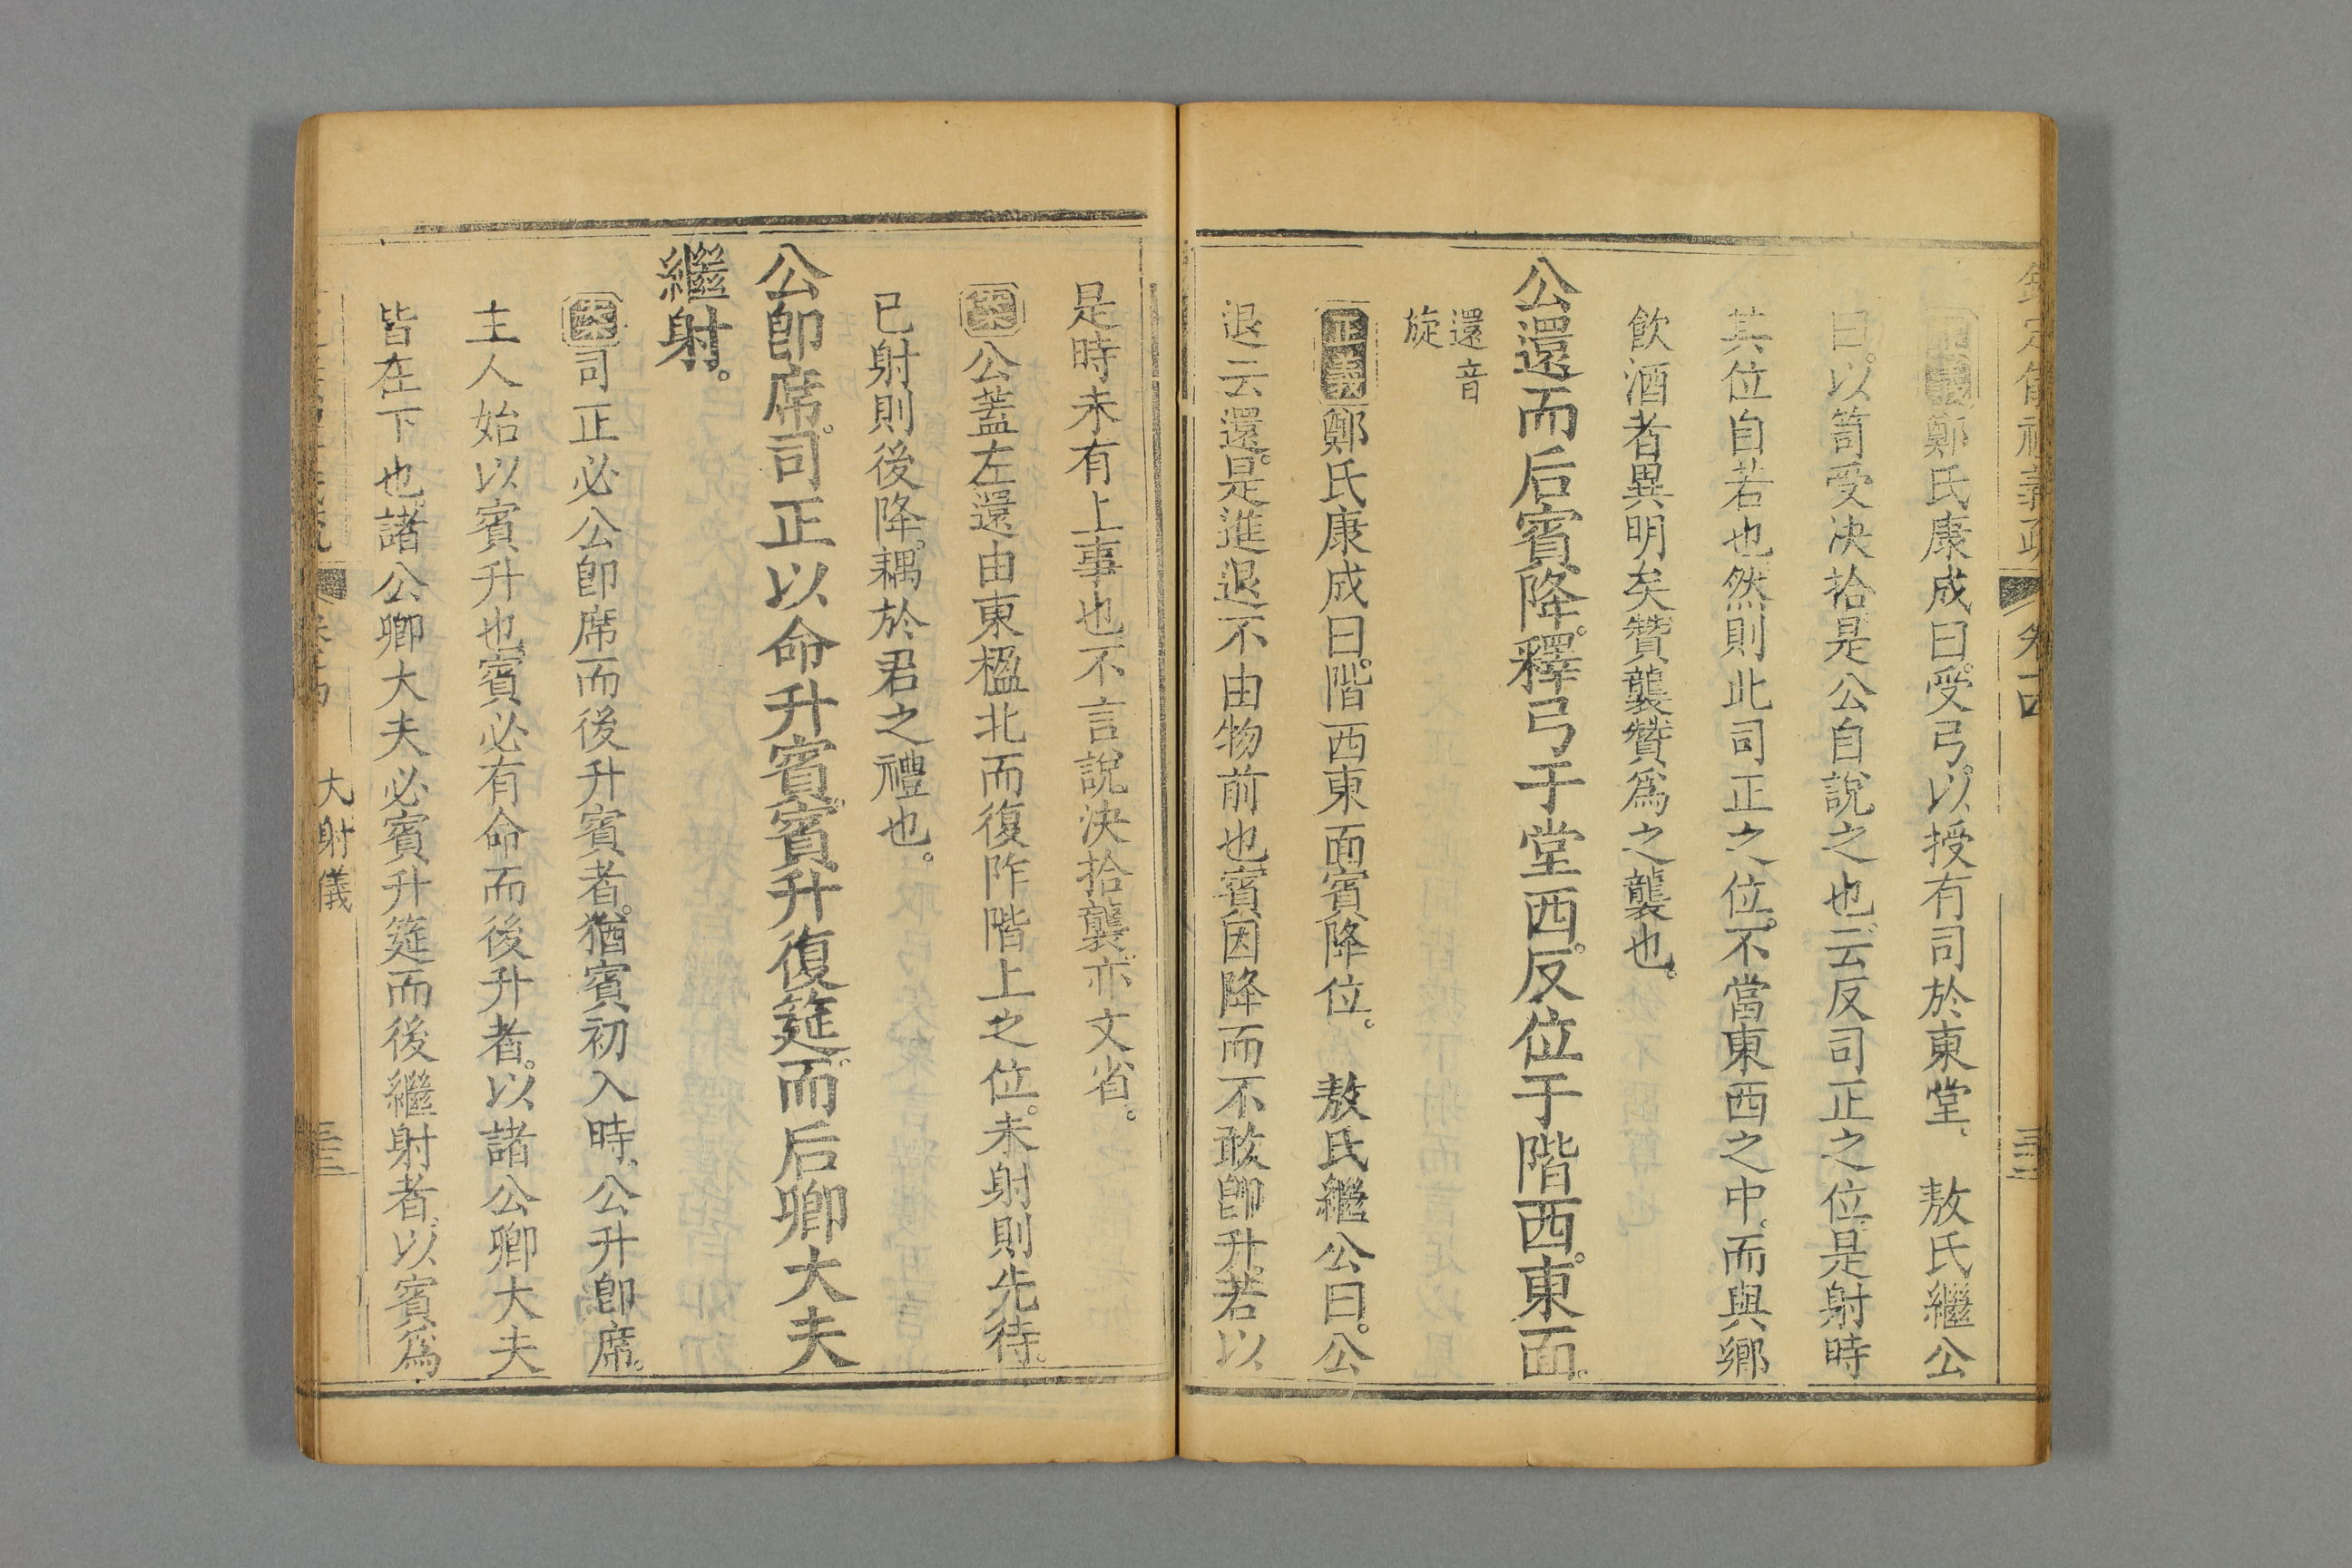 欽定儀禮義疏 卷十四
正義鄭氏康成曰受弓以授有司於東堂 敖氏繼公
曰以笥受決拾是公自說之也云反司正之位是射時
其位自若也然則此司正之位不當東西之中而與鄉
飲酒者異明矣贊襲贊為之襲也
公還而后賓降釋弓于堂西反位于階西東面
還音
旋
正義鄭氏康成曰階西東面賓降位 敖氏繼公曰公
退云還是進退不由物前也賓因降而不敢卽升若以
是時未有上事也不言說決拾襲亦文省
案公蓋左還由東楹北而復阼階上之位未射則先待
已射則後降耦於君之禮也
公卽席司正以命升賓賓升復筵而后卿大夫
繼射
案司正必公卽席而後升賓者猶賓初入時公升卽席
主人始以賓升也賓必有命而後升者以諸公卿大夫
皆在下也諸公卿大夫必賓升筵而後繼射者以賓爲
大射儀